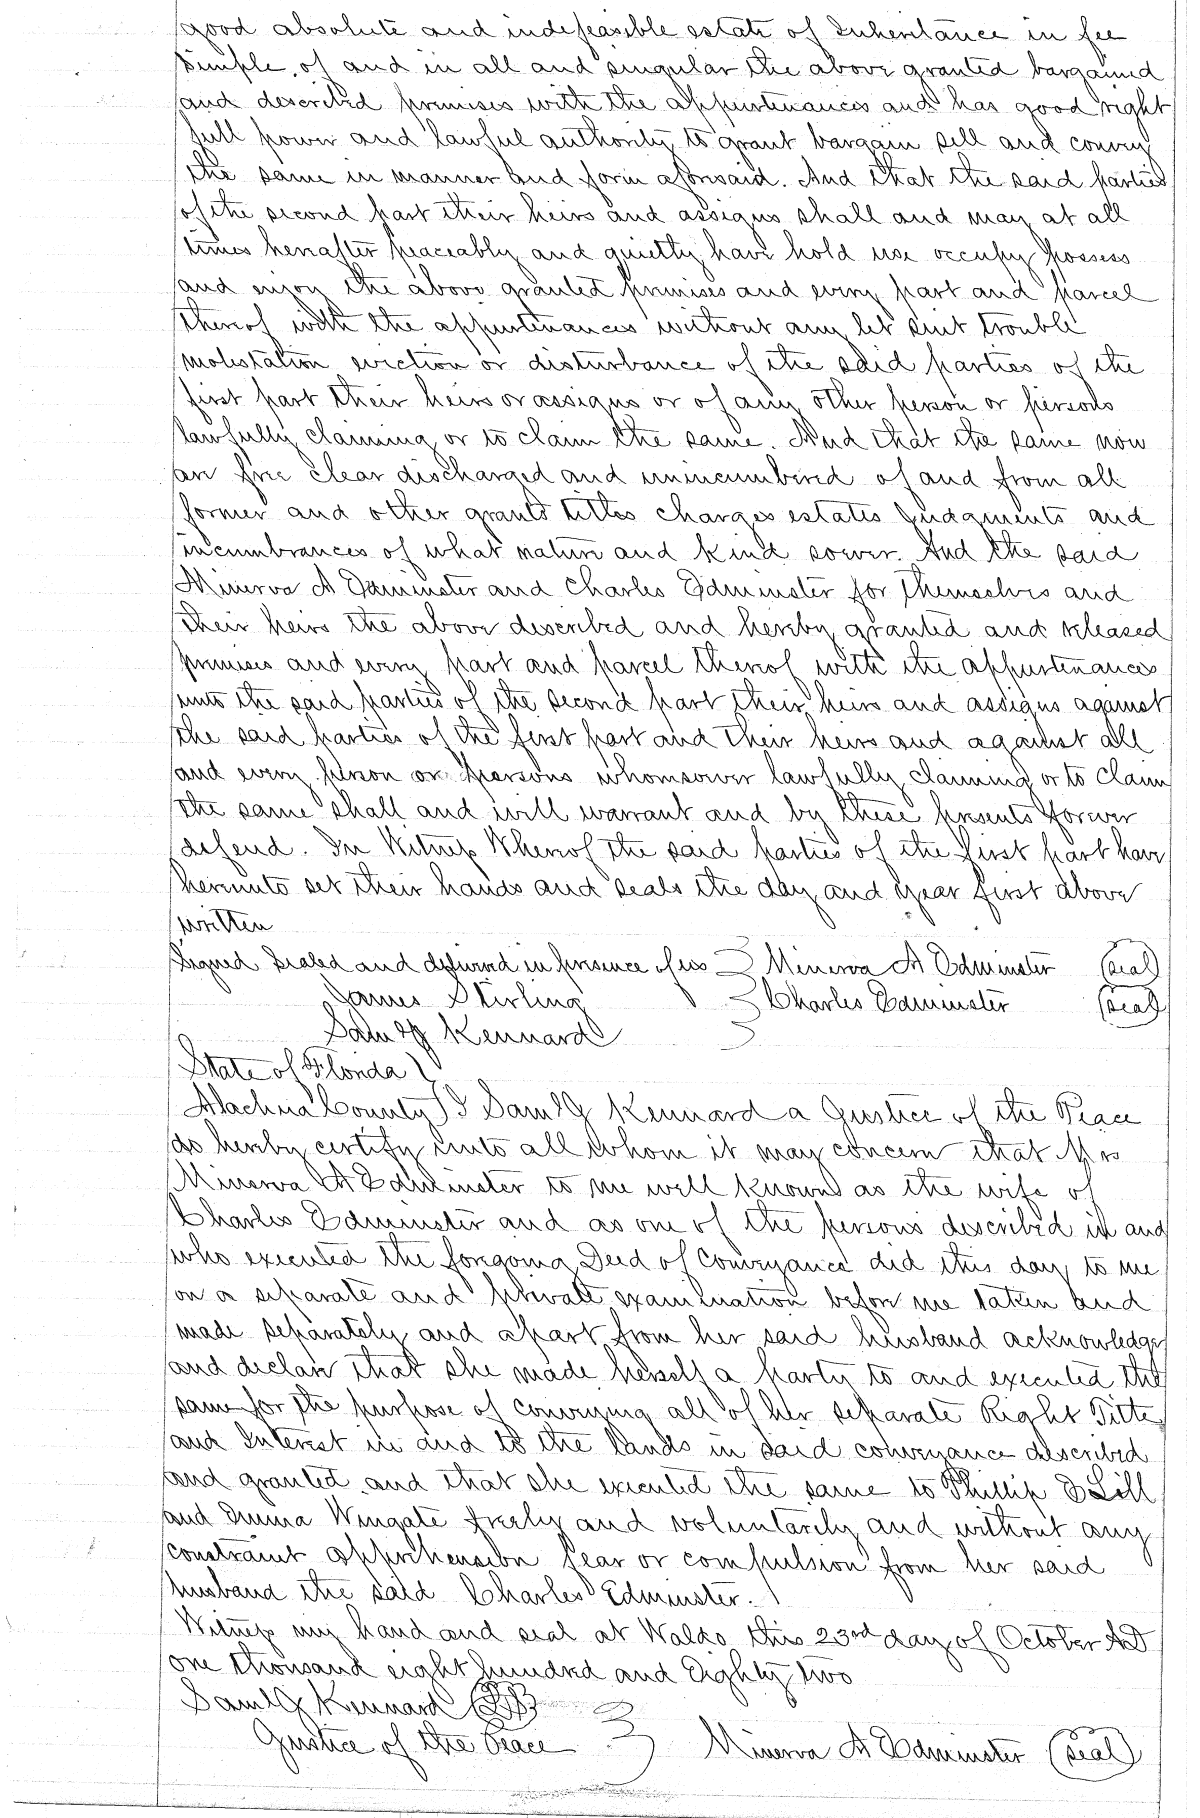 good absolute and indefeasible estate of Inheritance in fee
simple, of and in all and singular the above granted bargained
and described premises with the appurtenances and has good right
full power and lawful authority to grant bargain sell and convey
the same in manner and form aforesaid. And that the said parties
of the second part their heirs and assigns shall and may at all
times hereafter peaceably and quietly have hold use occupy possess
and enjoy the above granted premises and every part and parcel
thereof with the appurtenances without any let suit trouble
molestation eviction or disturbance of the said parties of the
first part their heirs or assigns or of any other person or persons
lawfully claiming or to claim the same. And that the same now
are free clear discharged and unincumbered of and from all
former and other grants titles charges estates Judgments and
incumbrances of what nature and kind soever. And the said
Minerva A Edminster and Charles Edminster for themselves and
their heirs the above described and hereby granted and released
premises and every part and parcel thereof with the appurtenances
unto the said parties of the second part their heirs and assigns against
the said parties of the first part and their heirs and against all
and every person or persons whomsoever lawfully claiming or to claim
the same shall and will warrant and by these presents forever
defend. In Witness Whereof the said parties of the first part have
hereunto set their hands and seals the day and year first above
written
Signed Sealed and delivered in presence of us Minerva A Edminster (seal)
James Stirling Charles Edminster (seal)
Saml G Kennard
State of Florida
Alachua County I Saml G Kennard a Justice of the Peace
do hereby certify unto all whom it may concern that Mrs
Minerva A Edminster to me well known as the wife of
Charles Edminster and as one of the persons described in and
who executed the foregoing Deed of Conveyance did this day to me
on a separate and private examination before me taken and
made separately and apart from her said husband acknowledge
and declare that she made herself a party to and executed the
same for the purpose of conveying all of her separate Right Title
and Interest in and to the lands in said conveyance described
and granted and that she executed the same to Phillip D Lill
and Emma Wingate freely and voluntarily and without any
constraint apprehension fear or compulsion from her said
husband the said Charles Edminster.
Witness my hand and seal at Waldo this 23rd day of October AD
one thousand eight hundred and Eighty two
Saml G Kennard
Justice of the Peace Minerva A Edminster (seal)